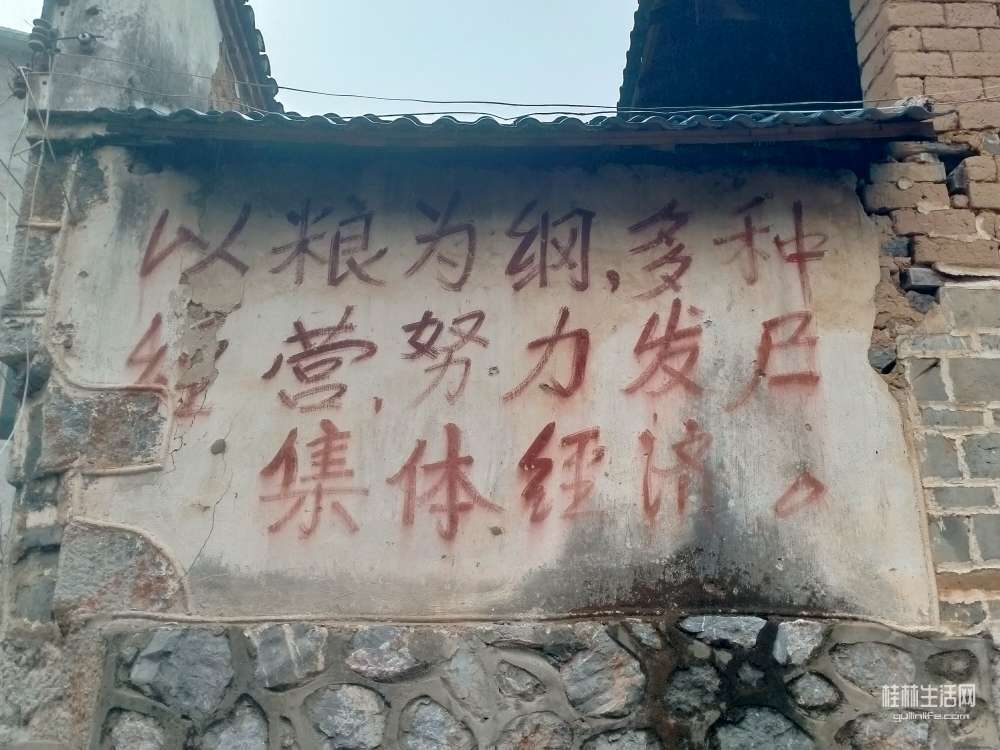 以粮为纲,多种
经营,努力发尸
集体经济。
桂林生活网
guilinlife.com